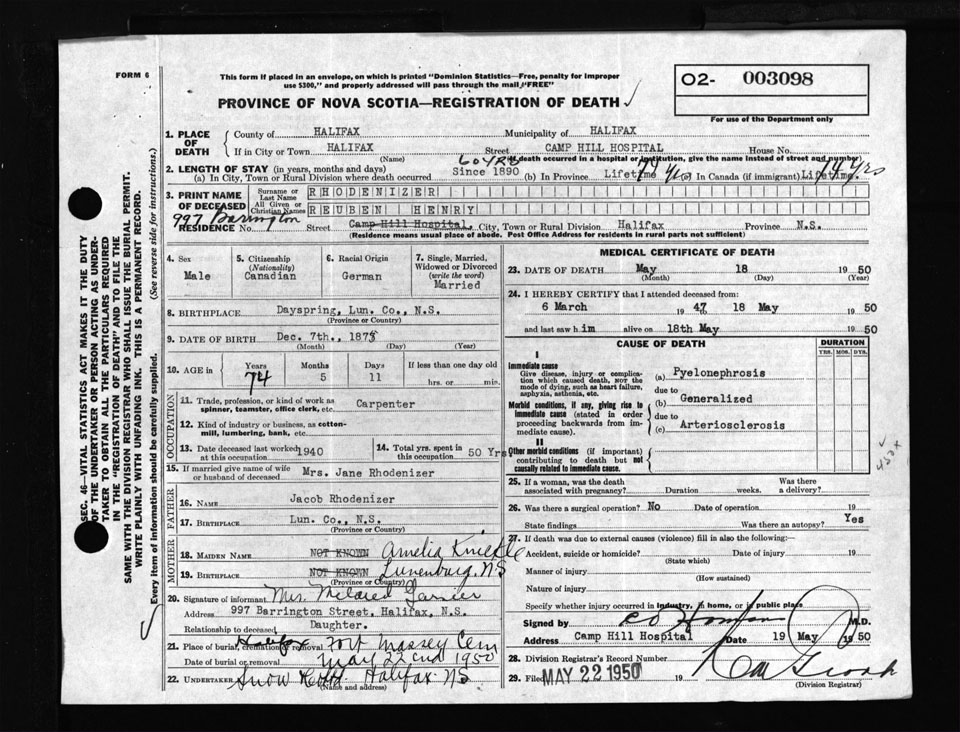 FORM 6
This form if placed in an envelope, on which is printed "Dominion Statistics—Free, penalty for improper
use $300," and properly addressed will pass through the mail "FREE"
O2- 003098
For use of the Department only
PROVINCE OF NOVA SCOTIA—REGISTRATION OF DEATH
1. PLACE OF DEATH
County of HALIFAX Municipality of HALIFAX
If in City or Town HALIFAX Street CAMP HILL HOSPITAL House No.
(Name) (If death occurred in a hospital or institution, give the name instead of street and number)
2. LENGTH OF STAY (in years, months and days)
(a) In City, Town or Rural Division where death occurred 60 YRS Since 1890 (b) In Province Lifetime 74 yrs (c) In Canada (if immigrant) Lifetime. 74 yrs
3. PRINT NAME OF DECEASED
Surname or Last Name RHODENIZER
All Given or Christian Names REUBEN HENRY
997 Barrington
RESIDENCE No. Street Camp Hill Hospital, City, Town or Rural Division Halifax Province N.S.
(Residence means usual place of abode. Post Office Address for residents in rural parts not sufficient)
4. Sex Male
5. Citizenship (Nationality) Canadian
6. Racial Origin German
7. Single, Married, Widowed or Divorced (write the word) Married
8. BIRTHPLACE Dayspring, Lun. Co., N.S.
(Province or Country)
9. DATE OF BIRTH Dec. 7th., 1875
(Month) (Day) (Year)
10. AGE in Years 74 Months 5 Days 11 If less than one day old hrs. or min.
OCCUPATION
11. Trade, profession, or kind of work as spinner, teamster, office clerk, etc. Carpenter
12. Kind of industry or business, as cotton-mill, lumbering, bank, etc.
13. Date deceased last worked at this occupation 1940
14. Total yrs. spent in this occupation 50 Yrs
15. If married give name of wife or husband of deceased Mrs. Jane Rhodenizer
FATHER
16. NAME Jacob Rhodenizer
17. BIRTHPLACE Lun. Co., N.S.
(Province or Country)
MOTHER
18. MAIDEN NAME NOT KNOWN Amelia
19. BIRTHPLACE NOT KNOWN Lunenburg, N.S
(Province or Country)
20. Signature of informant Mrs. Mildred
Address 997 Barrington Street, Halifax, N.S.
Relationship to deceased Daughter.
21. Place of burial, cremation or removal Halifax Fort Massey Cem
Date of burial or removal May 22nd 1950
22. UNDERTAKER Snow Halifax NS
(Name and address)
MEDICAL CERTIFICATE OF DEATH
23. DATE OF DEATH May 18 1950
(Month) (Day)
24. I HEREBY CERTIFY that I attended deceased from:
6 March 1947 to 18 May 1950
and last saw h im alive on 18th May 1950
CAUSE OF DEATH
DURATION
YRS. MOS. DYS.
I
Immediate cause
Give disease, injury or complication which caused death, NOT the mode of dying, such as heart failure, asphyxia, asthenia, etc.
(a) Pyelonephrosis
due to
Morbid conditions, if any, giving rise to immediate cause (stated in order proceeding backwards from immediate cause).
(b) Generalized
due to
(c) Arteriosclerosis
II
Other morbid conditions (if important) contributing to death but not causally related to immediate cause.
25. If a woman, was the death associated with pregnancy? Duration weeks. Was there a delivery?
26. Was there a surgical operation? No Date of operation 19
State findings Was there an autopsy? Yes
27. If death was due to external causes (violence) fill in also the following:
Accident, suicide or homicide? Date of injury 19
(State which)
Manner of injury
(How sustained)
Nature of injury
Specify whether injury occurred in industry, in home, or in public place
Signed by M.D.
Address Camp Hill Hospital Date 19 May 1950
28. Division Registrar's Record Number
29. Filed MAY 22 1950 19
(Division Registrar)
SEC. 46—VITAL STATISTICS ACT MAKES IT THE DUTY
OF THE UNDERTAKER OR PERSON ACTING AS UNDER-
TAKER TO OBTAIN ALL THE PARTICULARS REQUIRED
IN THE "REGISTRATION OF DEATH" AND TO FILE THE
SAME WITH THE DIVISION REGISTRAR WHO SHALL ISSUE THE BURIAL PERMIT.
WRITE PLAINLY WITH UNFADING INK. THIS IS A PERMANENT RECORD.
Every item of information should be carefully supplied. (See reverse side for instructions.)